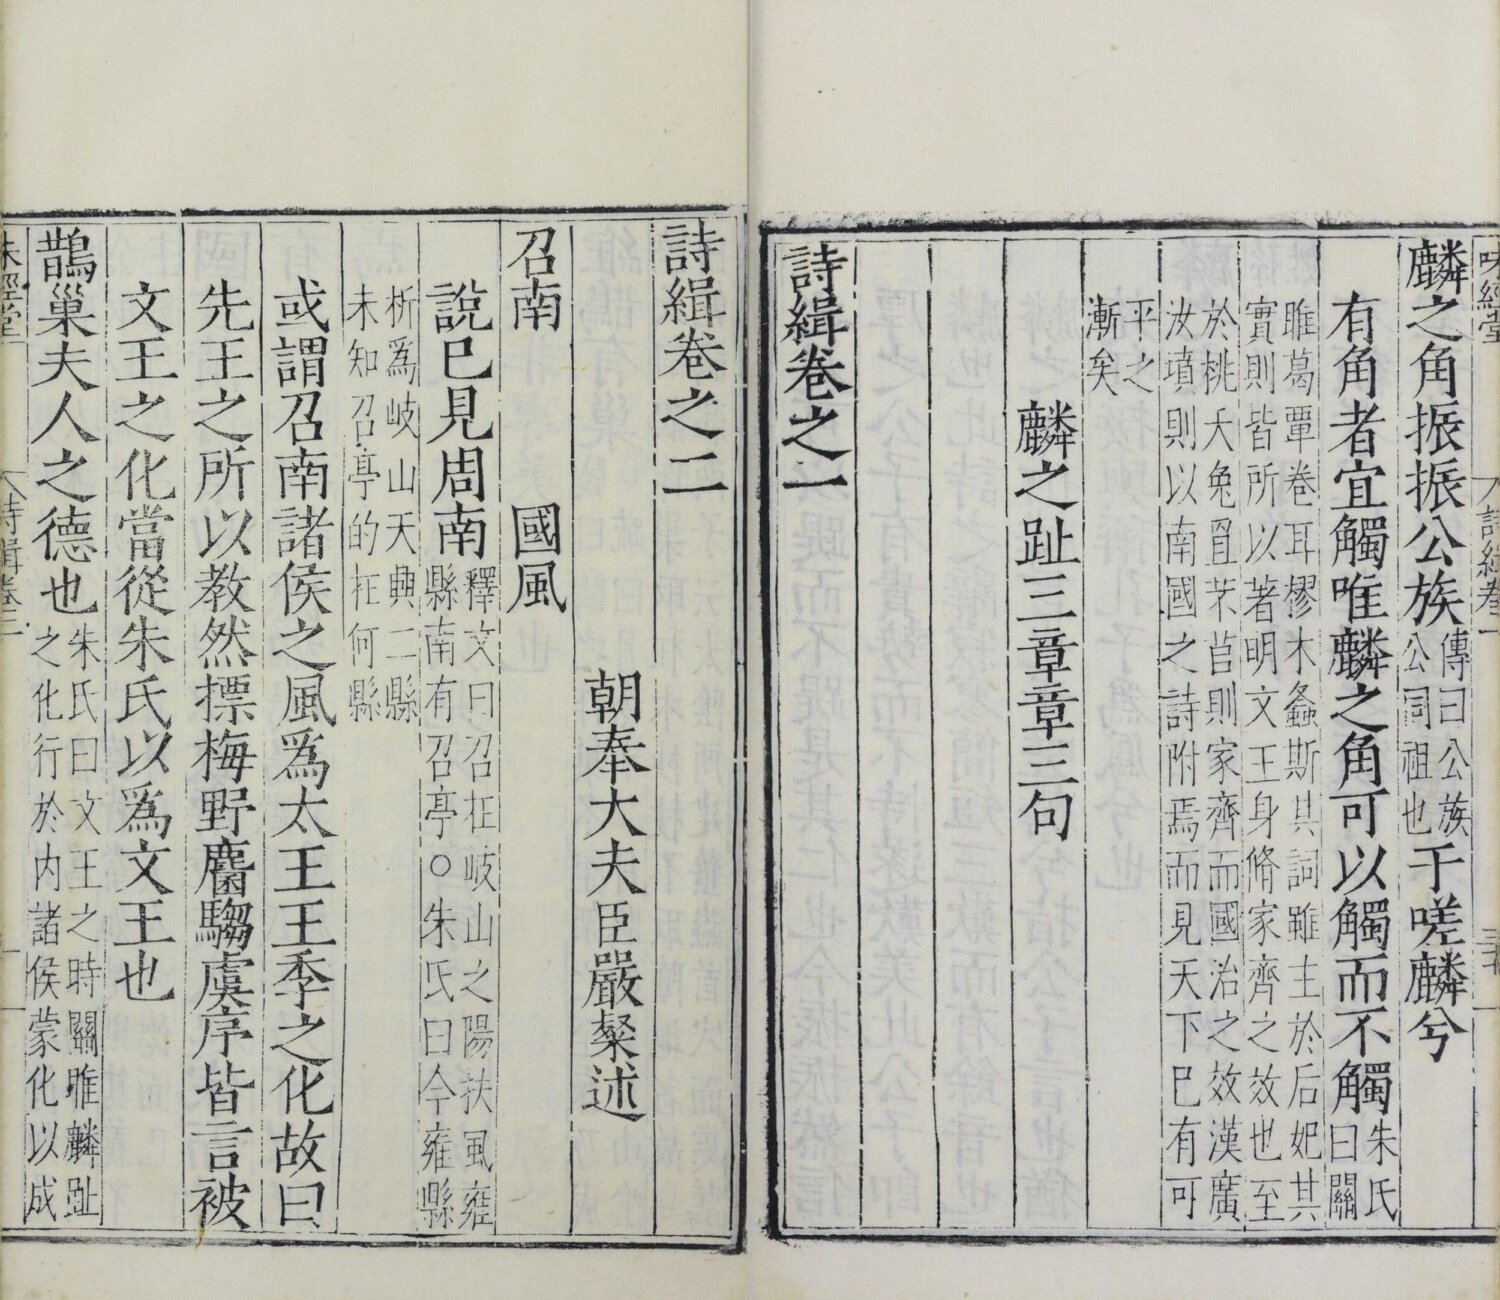 麟之角振振公族傳曰公族公同祖也于嗟麟兮
有角者宜觸唯麟之角可以觸而不觸朱氏曰關
雎葛覃卷耳樛木螽斯其詞雖主於后妃其
實則皆所以著明文王身脩家齊之效也至
於桃夭兔罝芣苢則家齊而國治之效漢廣
汝墳則以南國之詩附焉而見天下已有可
平之
漸矣
麟之趾三章章三句
詩緝卷之一
味經堂
詩緝卷一
詩緝卷之二
朝奉大夫臣嚴粲述
召南 國風
說已見周南釋文曰召在岐山之陽扶風雍縣南有召亭○朱氏曰今雍縣
析為岐山天興二縣
未知召亭的在何縣
或謂召南諸侯之風爲太王王季之化故曰
先王之所以教然摽梅野麕騶虞序皆言被
文王之化當從朱氏以爲文王也
鵲巢夫人之德也朱氏曰文王之時關雎麟趾之化行於內諸侯蒙化以成
味經堂
詩緝卷二